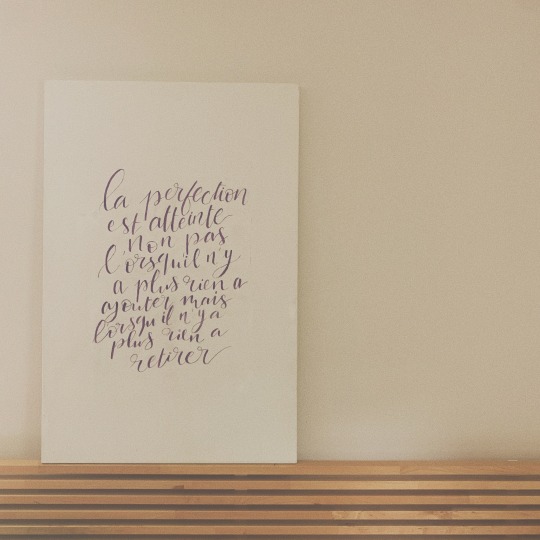 la perfection
est atteinte
non pas
lorsqu'il n'y
a plus rien a
ajouter mais
lorsqu il n'y a
plus rien a
retirer